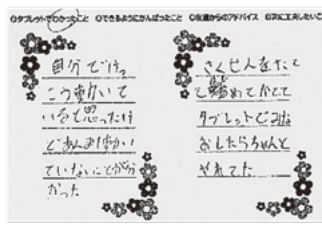 ❶タブレットでわかったこと ❷できるようにがんばったこと ❸友達からのアドバイス ❹次に工夫したいこ
自分でけっ
こう動いて
いると思ったけ
どあんまり動い
ていないことが分
かった
さくせんをたて
て攻めてかてて
タブレットでみな
おしたらちゃんと
せれてた